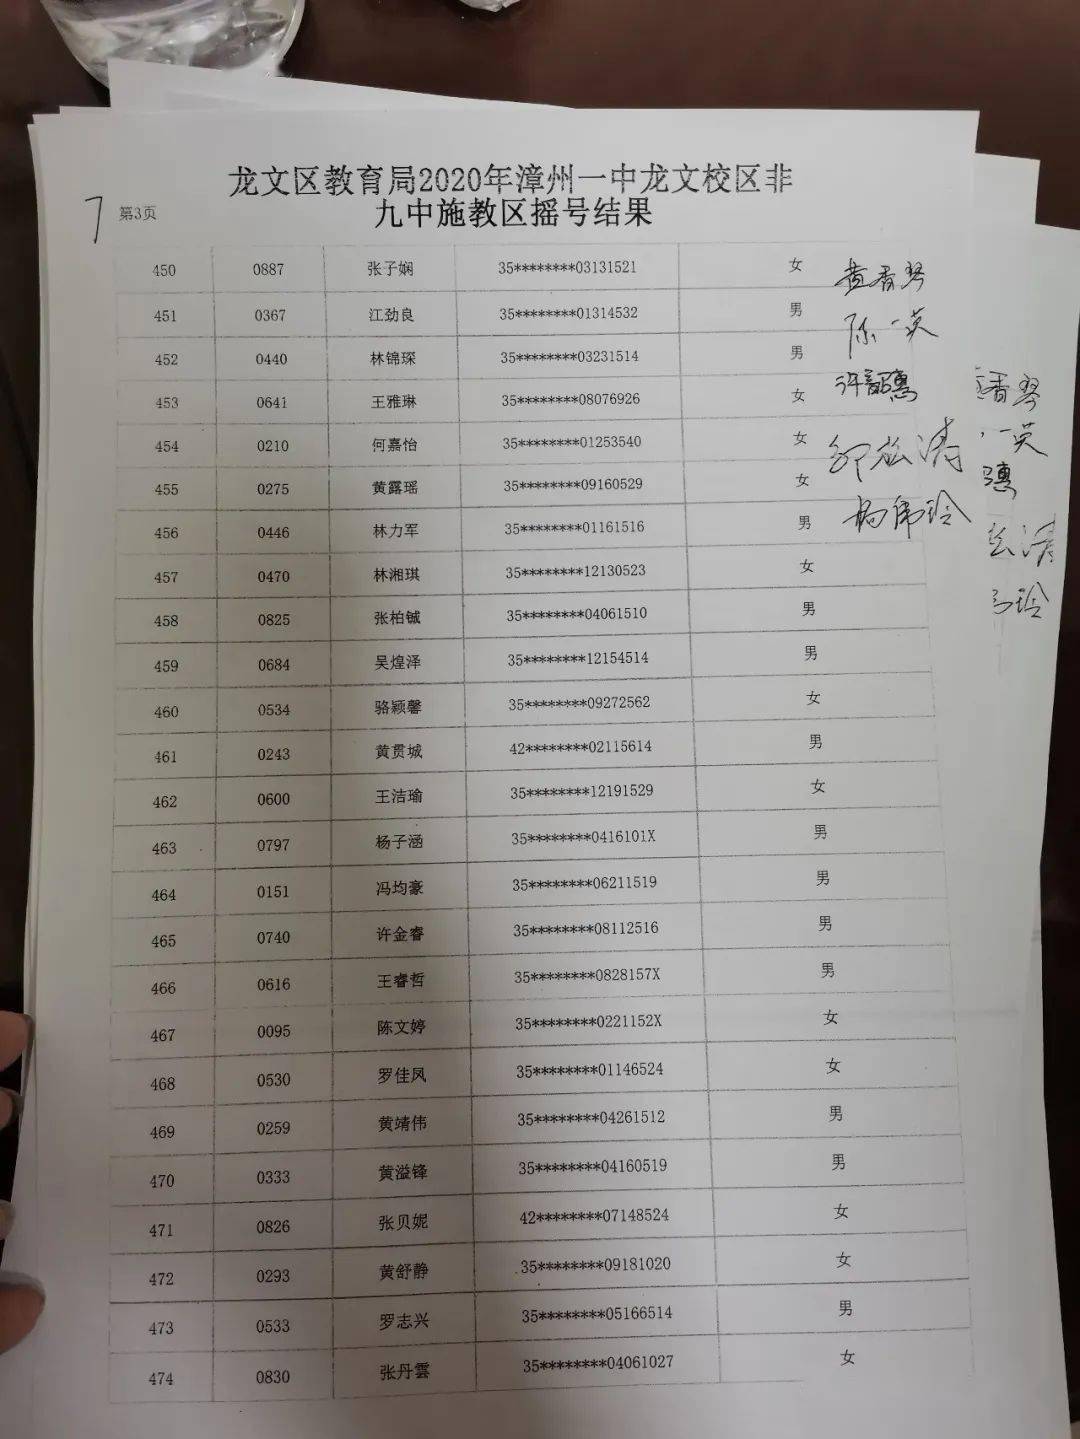 龙文区教育局2020年漳州一中龙文校区非
九中施教区摇号结果
7 第3页
450 0887 张子娴 35********03131521 女
451 0367 江劲良 35********01314532 男
452 0440 林锦琛 35********03231514 男
453 0641 王雅琳 35********08076926 女
454 0210 何嘉怡 35********01253540 女
455 0275 黄露瑶 35********09160529 女
456 0446 林力军 35********01161516 男
457 0470 林湘琪 35********12130523 女
458 0825 张柏铖 35********04061510 男
459 0684 吴煌泽 35********12154514 男
460 0534 骆颖馨 35********09272562 女
461 0243 黄贯城 42********02115614 男
462 0600 王洁瑜 35********12191529 女
463 0797 杨子涵 35********0416101X 男
464 0151 冯均豪 35********06211519 男
465 0740 许金睿 35********08112516 男
466 0616 王睿哲 35********0828157X 男
467 0095 陈文婷 35********0221152X 女
468 0530 罗佳凤 35********01146524 女
469 0259 黄靖伟 35********04261512 男
470 0333 黄溢锋 35********04160519 男
471 0826 张贝妮 42********07148524 女
472 0293 黄舒静 35********09181020 女
473 0533 罗志兴 35********05166514 男
474 0830 张丹雲 35********04061027 女
黄香琴
陈一英
许韶骢
松涛
杨伟玲
香琴
一英
涛
玲